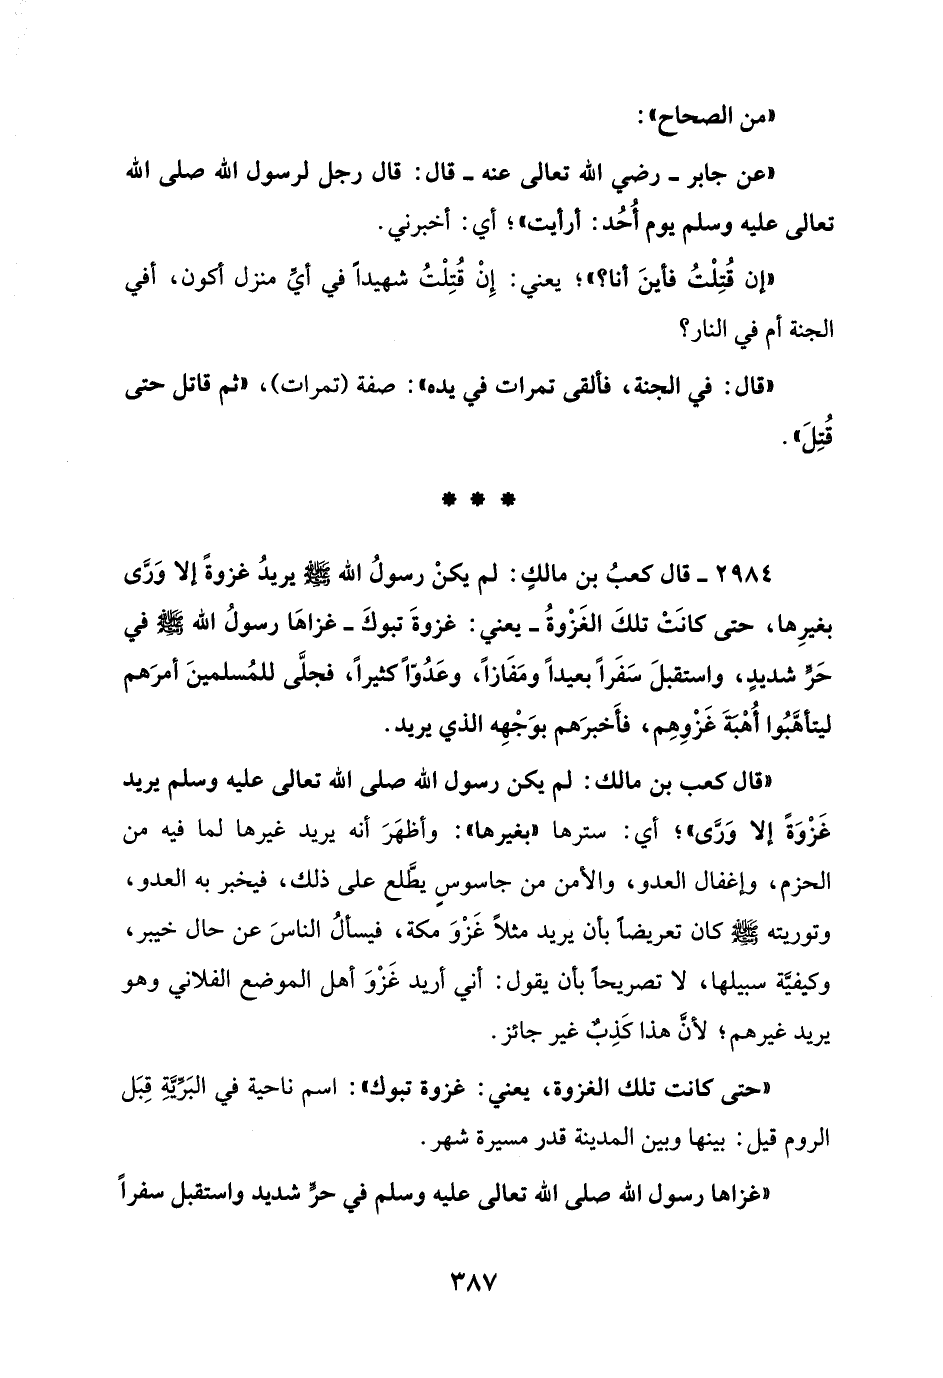 «من الصحاح»:
«عن جابر ـ رضي الله تعالى عنه ـ قال: قال رجل لرسول الله صلى الله
تعالى عليه وسلم يوم أُحُد: أرأيت»؛ أي: أخبرني.
«إن قُتِلْتُ فأينَ أنا؟»؛ يعني: إِنْ قُتِلْتُ شهيداً في أيِّ منزل أكون، أفي
الجنة أم في النار؟
«قال: في الجنة، فألقى تمرات في يده»: صفة (تمرات)، «ثم قاتل حتى
قُتِلَ».
* * *
٢٩٨٤ ـ قال كعبُ بن مالكٍ: لم يكنْ رسولُ الله ﷺ يريدُ غزوةً إلا وَرَّى
بغيرِها، حتى كانَتْ تلكَ الغَزْوةُ ـ يعني: غزوةَ تبوكَ ـ غزاهَا رسولُ الله ﷺ في
حَرٍّ شديدٍ، واستقبلَ سَفَراً بعيداً ومَفَازاً، وعَدُوّاً كثيراً، فجلَّى للمُسلمينَ أمرَهم
ليتأهَّبُوا أُهْبَةَ غَزْوِهِم، فأَخبرَهم بوَجْهِه الذي يريد.
«قال كعب بن مالك: لم يكن رسول الله صلى الله تعالى عليه وسلم يريد
غَزْوَةً إلا وَرَّى»؛ أي: سترها «بغيرها»: وأظهَرَ أنه يريد غيرها لما فيه من
الحزم، وإغفال العدو، والأمن من جاسوسٍ يطَّلع على ذلك، فيخبر به العدو،
وتوريته ﷺ كان تعريضاً بأن يريد مثلاً غَزْوَ مكة، فيسألُ الناسَ عن حال خيبر،
وكيفيَّة سبيلها، لا تصريحاً بأن يقول: أني أريد غَزْوَ أهل الموضع الفلاني وهو
يريد غيرهم؛ لأنَّ هذا كَذِبٌ غير جائز.
«حتى كانت تلك الغزوة، يعني: غزوة تبوك»: اسم ناحية في البَرِّيَّةِ قِبَل
الروم قيل: بينها وبين المدينة قدر مسيرة شهر.
«غزاها رسول الله صلى الله تعالى عليه وسلم في حرٍّ شديد واستقبل سفراً
٣٨٧